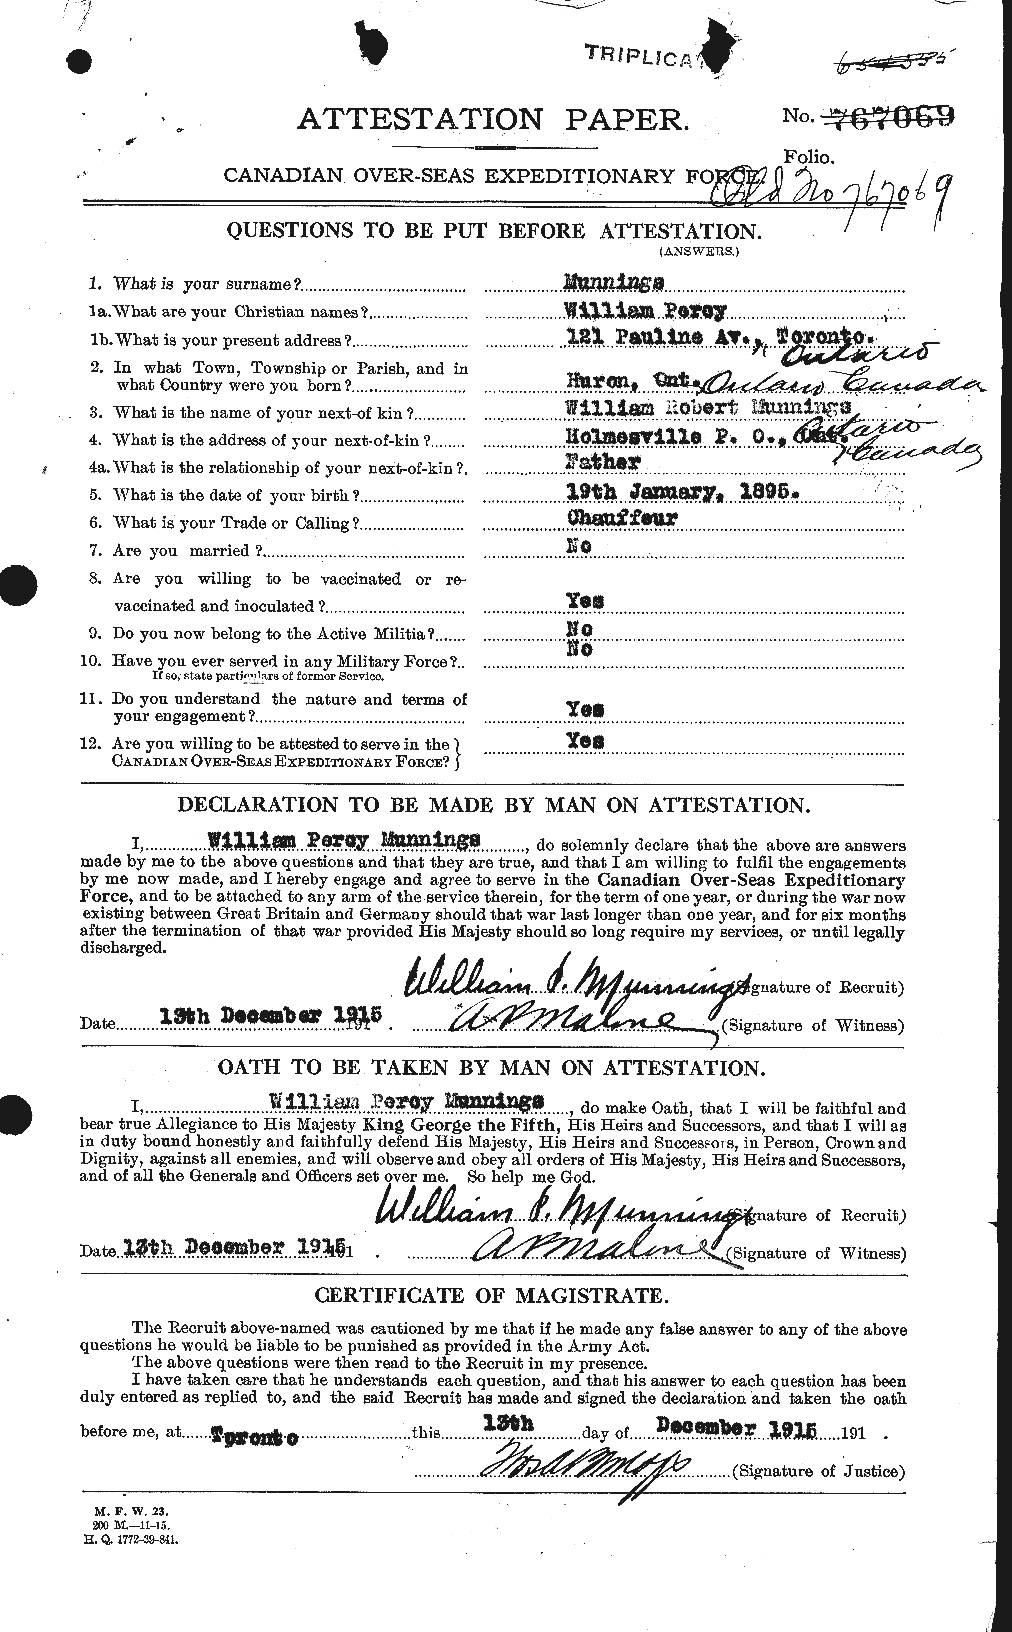 TRIPLICA
ATTESTATION PAPER.
No. 767069
Folio.
CANADIAN OVER-SEAS EXPEDITIONARY FORCE.
Old No 767069
QUESTIONS TO BE PUT BEFORE ATTESTATION.
(ANSWERS.)
1. What is your surname? Munnings
1a. What are your Christian names? William Percy
1b. What is your present address? 121 Pauline Av., Toronto.
Ontario
2. In what Town, Township or Parish, and in
what Country were you born? Huron, Ont. Ontario Canada
3. What is the name of your next-of kin? William Robert Munnings
4. What is the address of your next-of-kin? Holmesville P. O., Ont. Ontario
Canada
4a. What is the relationship of your next-of-kin? Father
5. What is the date of your birth? 19th January, 1895.
6. What is your Trade or Calling? Chauffeur
7. Are you married? No
8. Are you willing to be vaccinated or re-
vaccinated and inoculated? Yes
9. Do you now belong to the Active Militia? No
10. Have you ever served in any Military Force? No
If so, state particulars of former Service.
11. Do you understand the nature and terms of
your engagement? Yes
12. Are you willing to be attested to serve in the Yes
CANADIAN OVER-SEAS EXPEDITIONARY FORCE?
DECLARATION TO BE MADE BY MAN ON ATTESTATION.
I, William Percy Munnings, do solemnly declare that the above are answers
made by me to the above questions and that they are true, and that I am willing to fulfil the engagements
by me now made, and I hereby engage and agree to serve in the Canadian Over-Seas Expeditionary
Force, and to be attached to any arm of the service therein, for the term of one year, or during the war now
existing between Great Britain and Germany should that war last longer than one year, and for six months
after the termination of that war provided His Majesty should so long require my services, or until legally
discharged.
William P. Munnings (Signature of Recruit)
Date 13th December 1915 191 . A P Malone (Signature of Witness)
OATH TO BE TAKEN BY MAN ON ATTESTATION.
I, William Percy Munnings, do make Oath, that I will be faithful and
bear true Allegiance to His Majesty King George the Fifth, His Heirs and Successors, and that I will as
in duty bound honestly and faithfully defend His Majesty, His Heirs and Successors, in Person, Crown and
Dignity, against all enemies, and will observe and obey all orders of His Majesty, His Heirs and Successors,
and of all the Generals and Officers set over me. So help me God.
William P. Munnings (Signature of Recruit)
Date 13th December 1915 191 . A P Malone (Signature of Witness)
CERTIFICATE OF MAGISTRATE.
The Recruit above-named was cautioned by me that if he made any false answer to any of the above
questions he would be liable to be punished as provided in the Army Act.
The above questions were then read to the Recruit in my presence.
I have taken care that he understands each question, and that his answer to each question has been
duly entered as replied to, and the said Recruit has made and signed the declaration and taken the oath
before me, at Toronto this 13th day of December 1915 191 .
(Signature of Justice)
M. F. W. 23.
200 M.—11-15.
H. Q. 1772-39-841.